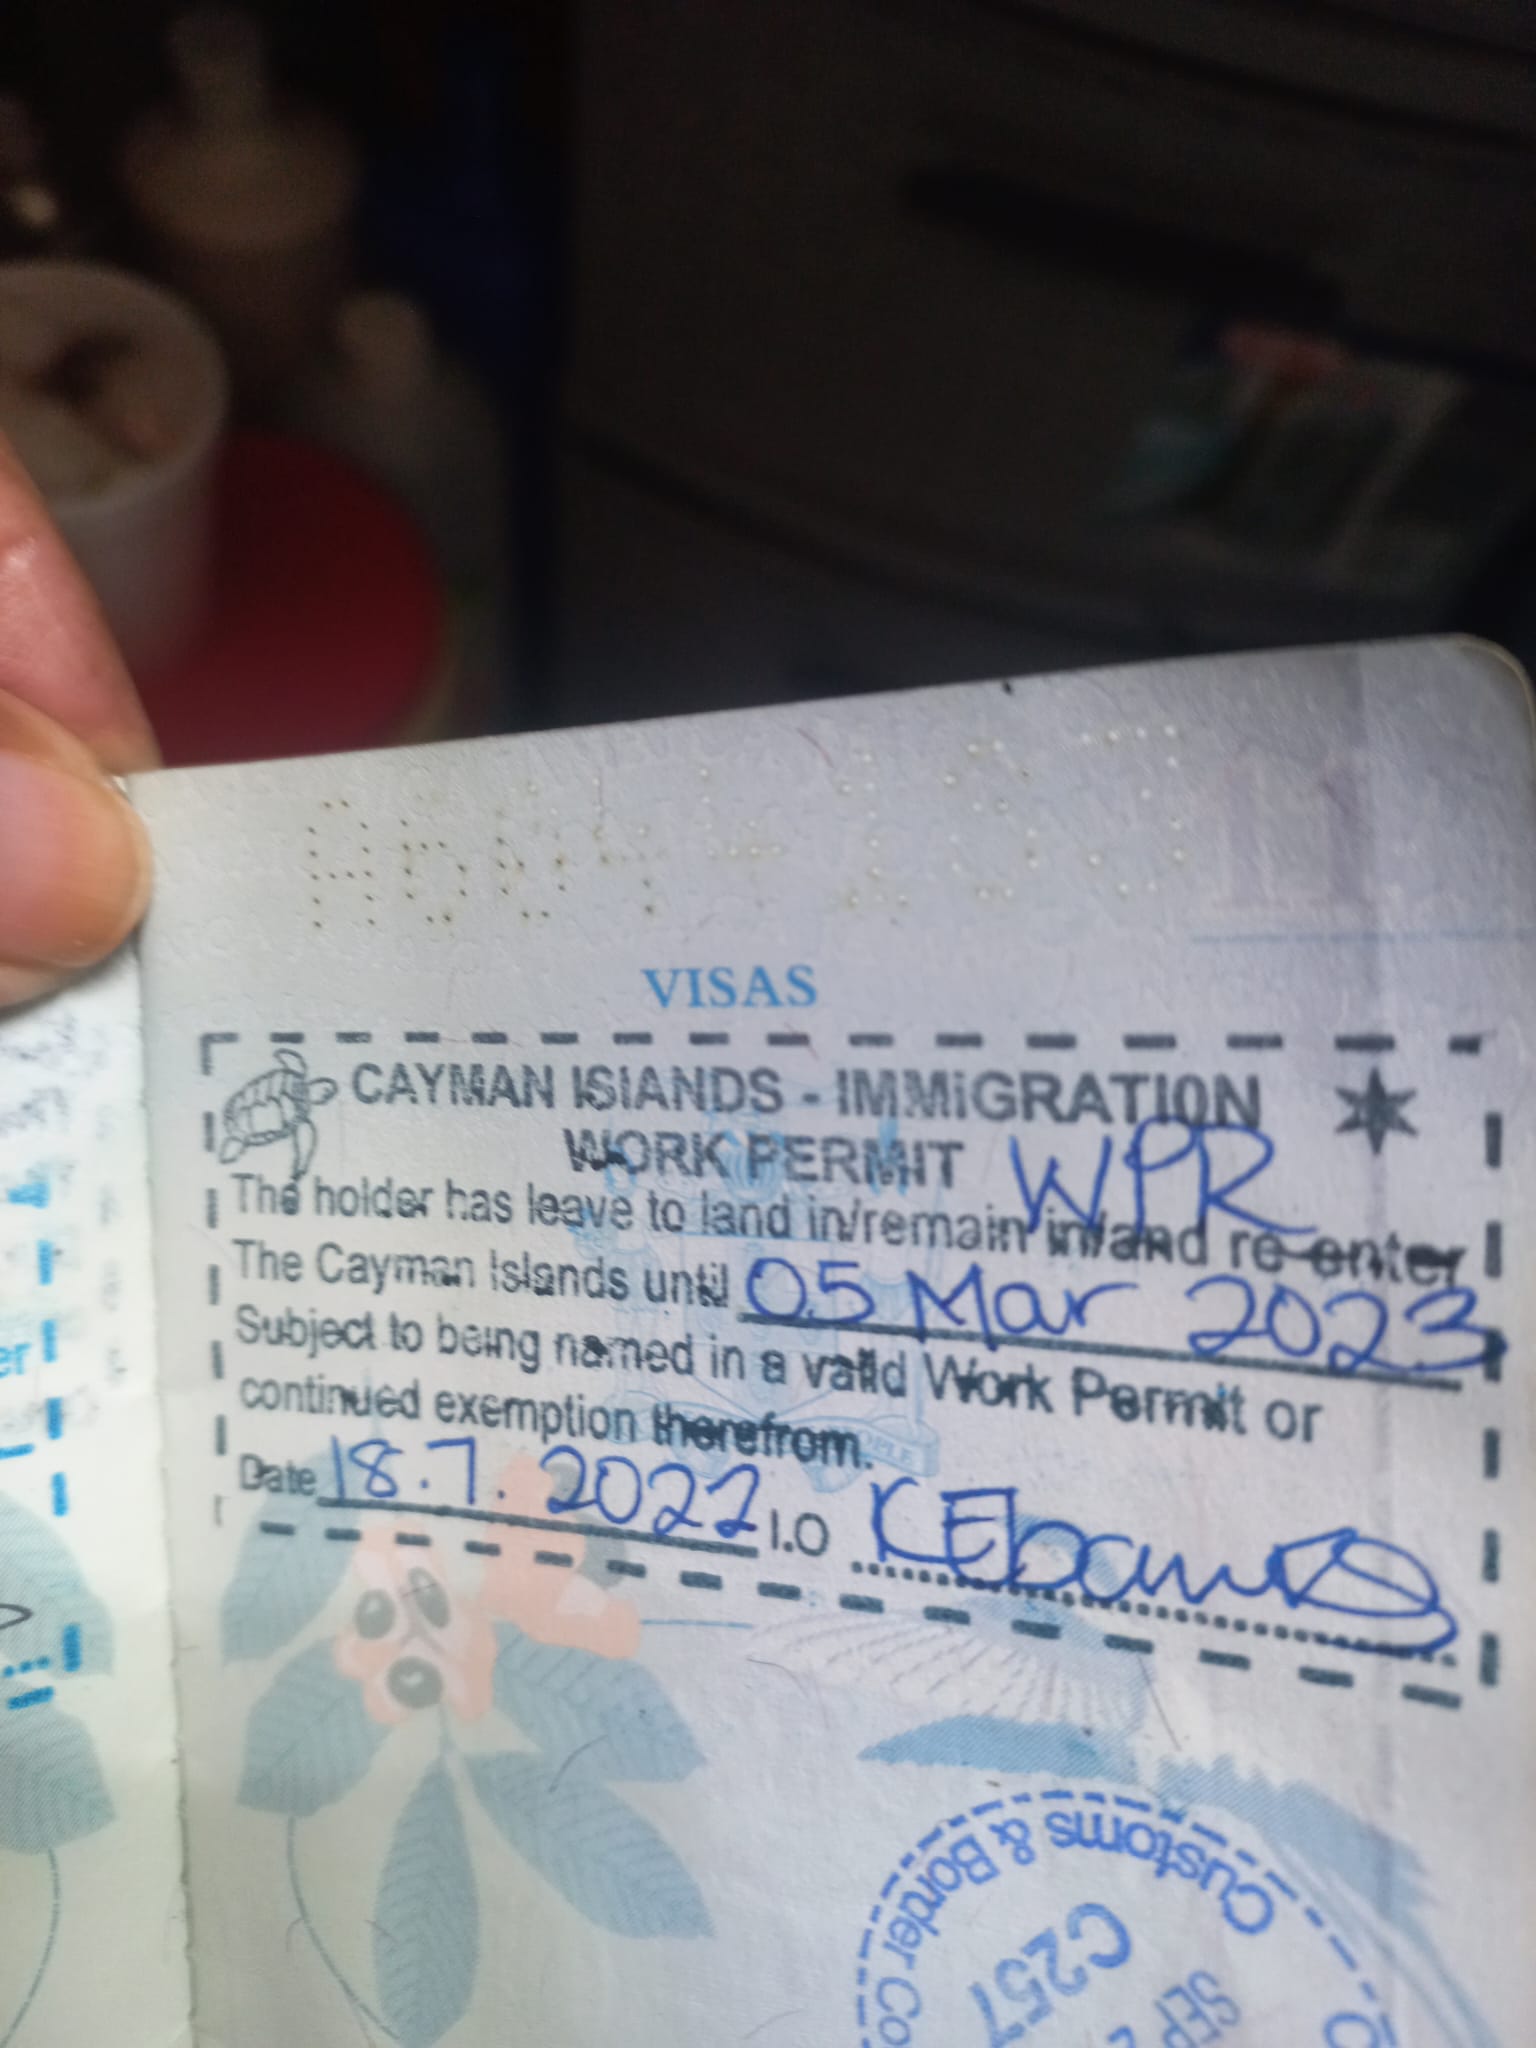 VISAS
CAYMAN ISLANDS - IMMIGRATION
WORK PERMIT WPR
The holder has leave to land in/remain in/and re-enter
The Cayman Islands until 05 Mar 2023
Subject to being named in a valid Work Permit or
continued exemption therefrom.
Date 18.7.2022 I.O KEbanks
Customs & Border Co
C257
SEP 2